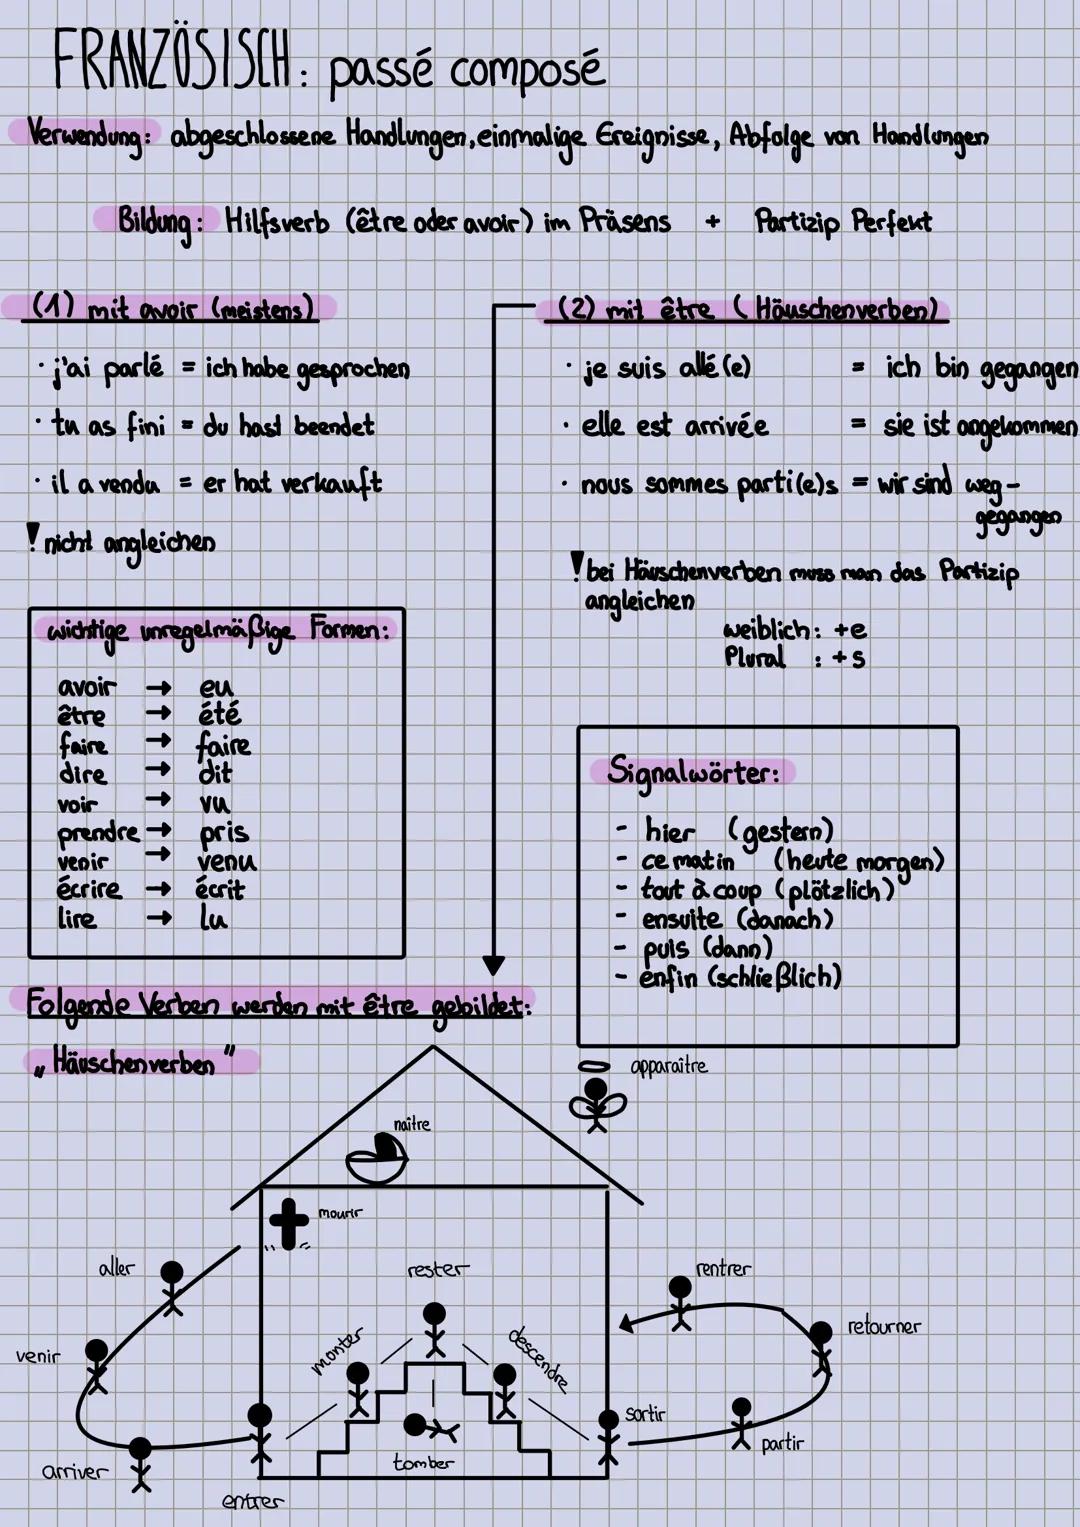 FRANZÖSISCH: passé composé
Verwendung: abgeschlossene Handlungen, einmalige Ereignisse, Abfolge von Handlungen
Bildung: Hilfsverb (être oder avoir) im Präsens + Partizip Perfekt
(1) mit avoir (meistens)
· j'ai parlé = ich habe gesprochen
· tu as fini = du hast beendet
· il a vendu = er hat verkauft
! nicht angleichen
wichtige unregelmäßige Formen:
avoir → eu
être → été
faire → faire
dire → dit
voir → vu
prendre → pris
venir → venu
écrire → écrit
lire → lu
(2) mit être (Häuschenverben)
· je suis allé(e) = ich bin gegangen
· elle est arrivée = sie ist angekommen
· nous sommes parti(e)s = wir sind weg-
gegangen
! bei Häuschenverben muss man das Partizip
angleichen
weiblich: +e
Plural : +s
Signalwörter:
- hier (gestern)
- ce matin (heute morgen)
- tout à coup (plötzlich)
- ensuite (danach)
- puis (dann)
- enfin (schließlich)
Folgende Verben werden mit être gebildet:
„Häuschenverben"
apparaître
naître
mourir
aller
rester
rentrer
venir
monter
descendre
retourner
arriver
tomber
sortir
partir
entrer